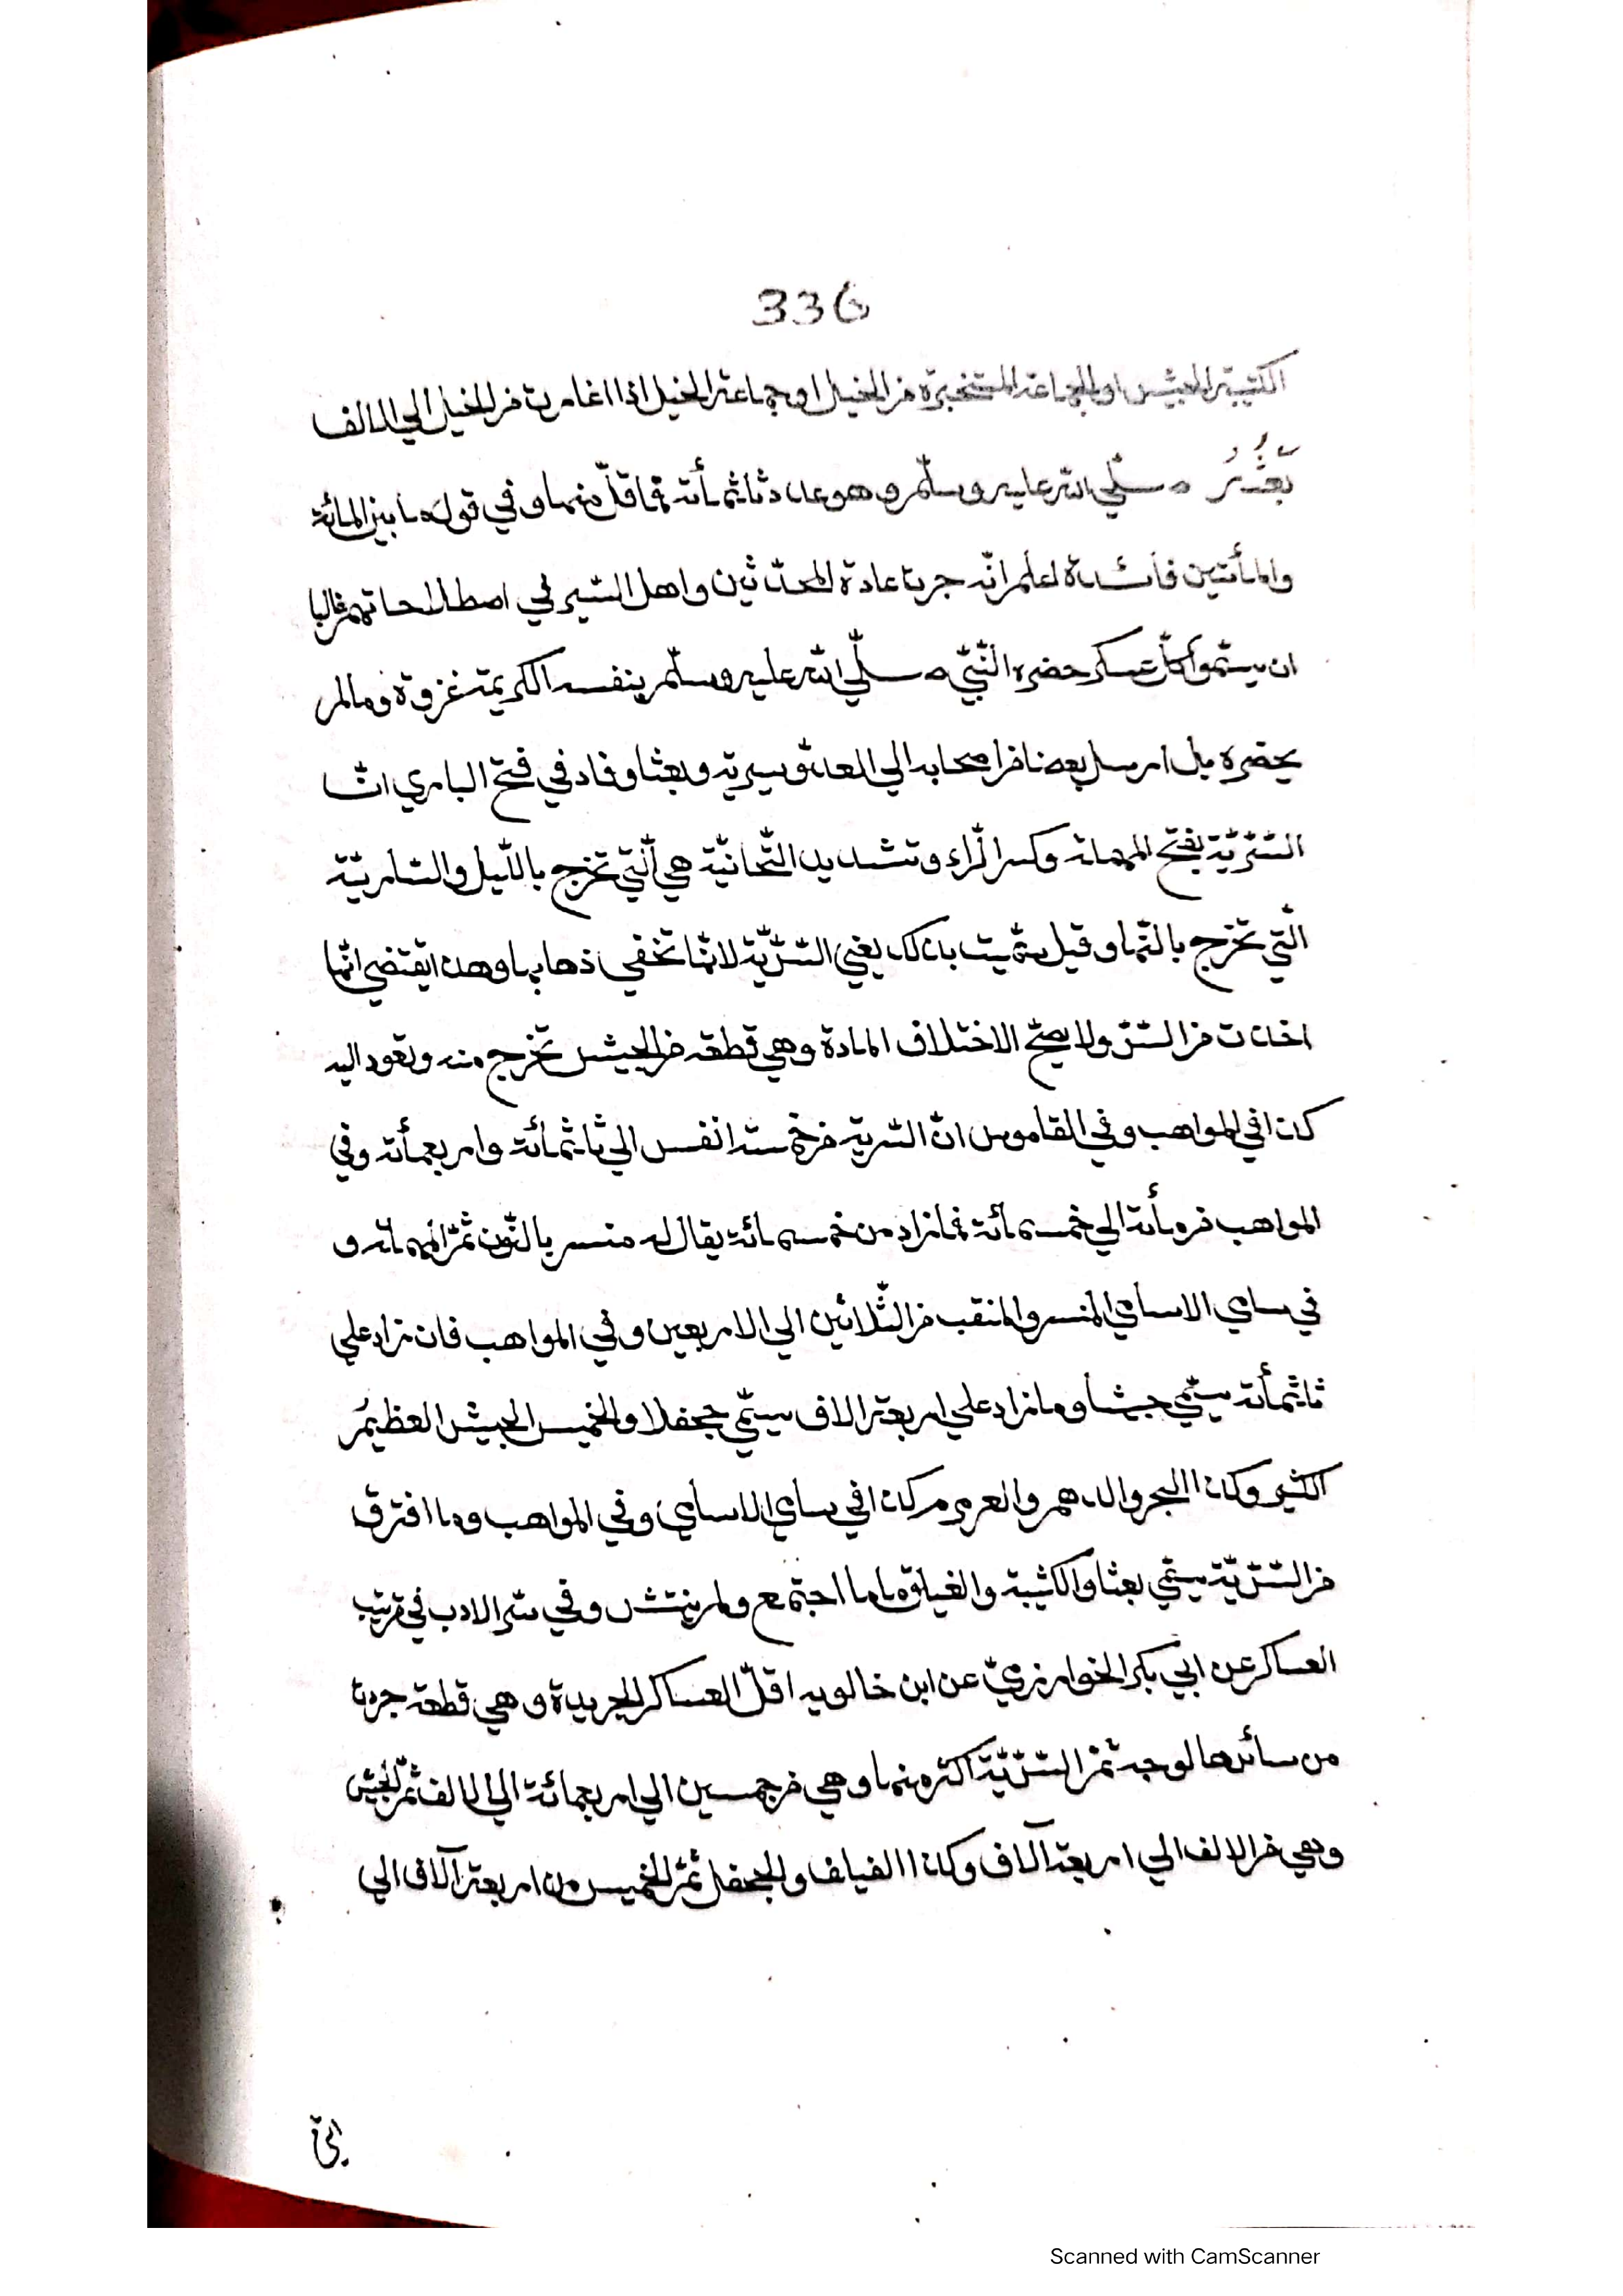 336
الكتيبة الجيش او الجماعة المستخبرة من الخيل او جماعة الخيل اذا اغارت من الخيل الي الالف
صلّي الله عليه وسلّم وهو عدد ثلثمأته فما قلّ منها وفي قوله ما بين المائة
والمأتين فائدة اعلم انّه جرت عادة المحدّثين واهل السّير في اصطلاحاتهم غالبا
ان يسمّوا كلّ عسكر حضره النّبيّ صلّي الله عليه وسلّم بنفسه الكريمة غزوة وما لم
يحضره بل ارسل بعضا من اصحابه الي العدوّ سرية وبعثا وقاد في فتح الباري انّ
السّريّة بفتح المهملة وكسر الرّاء وتشديد التّحانيّة هي الّتي تخرج باللّيل والسّاريّة
الّتي تخرج بالنّهار وقيل سمّيت بذلك يعني السّريّة لانّها تخفي ذهابها وهذا يقتضي انّها
اخذت من السّرّ ولا يصحّ الاختلاف المادة وهي قطعة من الجيش تخرج منه وتعود اليه
كذا في المواهب وفي القاموس انّ السّرية من خمسة انفس الي ثلثمائة واربعمأئة وفي
المواهب من مأئة الي خمسمائة فما زاد من خمسمائة يقال له منسر بالنّون ثمّ المهملة و
في سامي الاسامي المنسر والمنقب من الثّلاثين الي الاربعين وفي المواهب فان زاد علي
ثلثمأئة يسمّي جيشا وما زاد علي اربعة الاف يسمّي جحفلا والخميس الجيش العظيمُ
الكثير وكذا البحر والدهم والعرمرم كذا في سامي الاسامي وفي المواهب وما افترق
من السّريّة يسمّي بعثا والكثيبة والفيلق ما اجتمع ولم ينتشر وفي سرّ الادب في ترتيب
العساكر عن ابي بكر الخوارزميّ عن ابن خالويه اقلّ العساكر الجريدة وهي قطعة جردت
من سائرها لوجه ثمّ السّريّة اكثر منها وهي من خمسين الي اربعمائة الي الالف ثمّ الجيش
وهي من الالف الي اربعة آلاف وكذا الفيلق والجحفل ثمّ الخميس من اربعة آلاف الي
Scanned with CamScanner